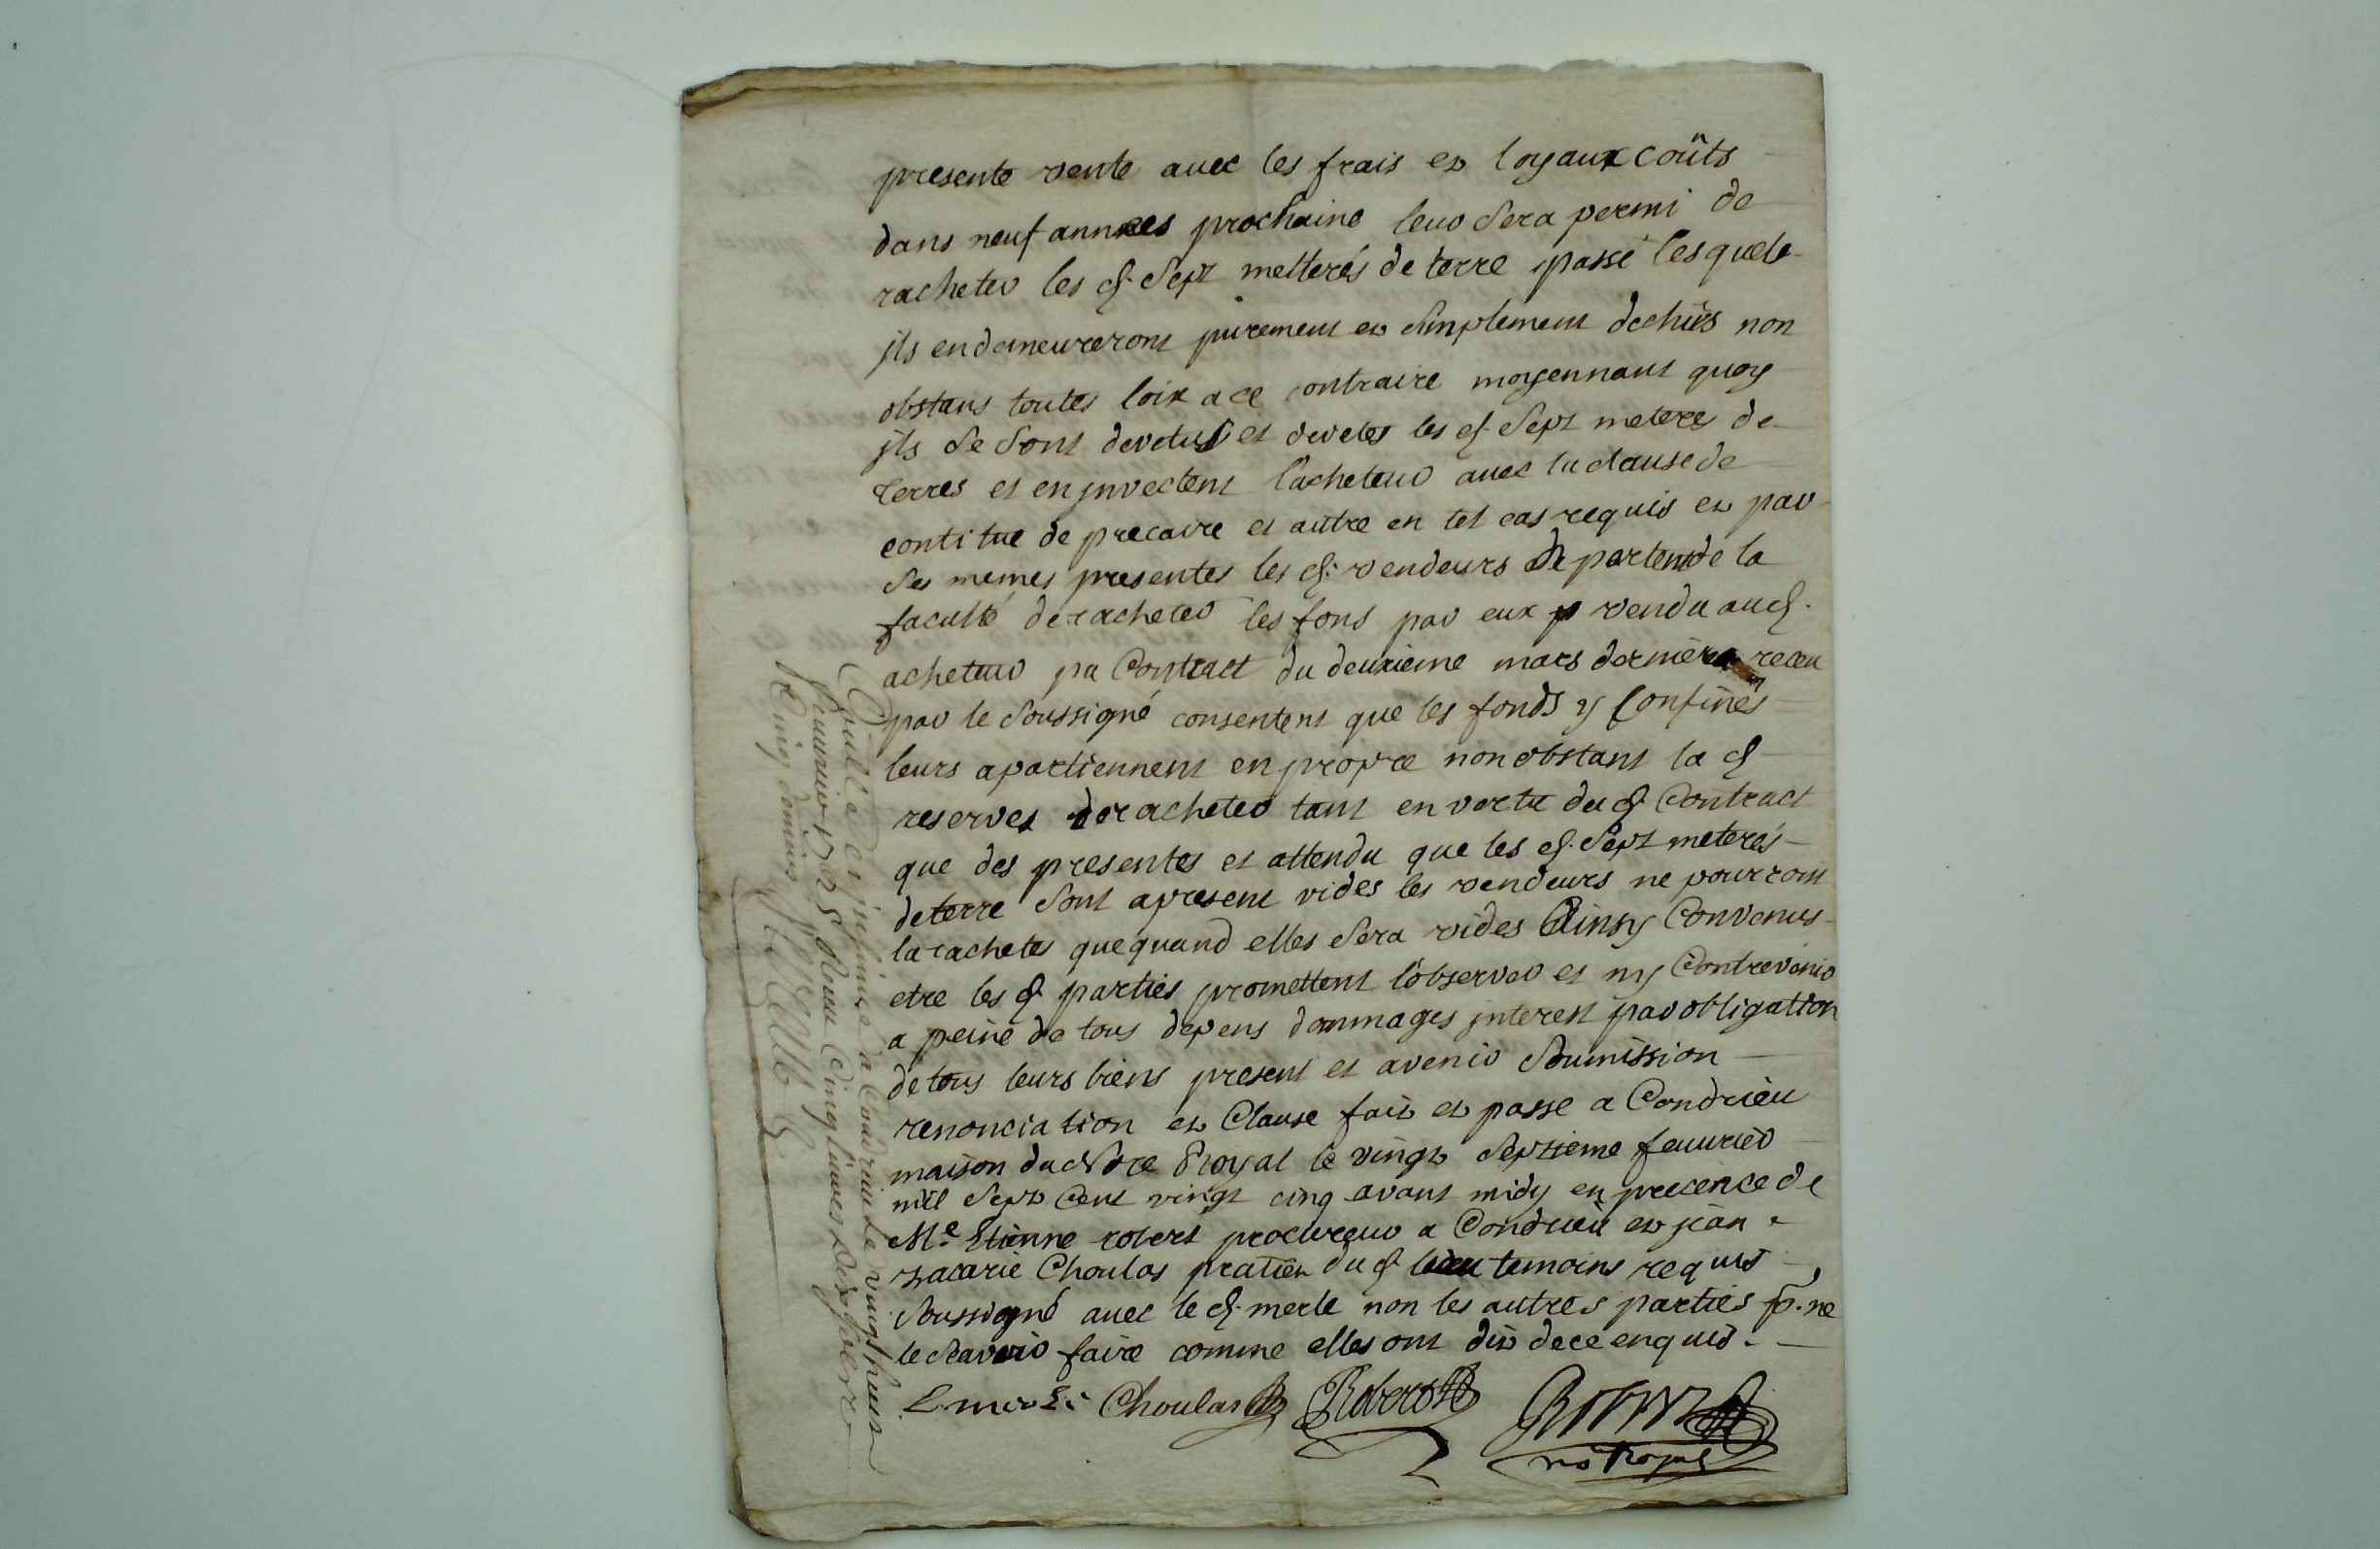 presente vente avec les frais et loyaux coûts
dans neuf années prochaine leur sera permi de
racheter les d. sept metterés de terre passé lesquels
ils en demeureront purement et simplement dechûs non
obstans toutes loix a ce contraire moyennant quoy
ils se sont devetus et devetes les d. sept meteres de
terres et en jnvectent l'acheteur avec la clause de
contitue de precaire et autre en tel cas requis et par
ses memes presentes les d. vendeurs departent de la
faculté de racheter les fons par eux vendu aud.
acheteur pa Contract du deuxieme mars derniere receu
par le soussigné consentent que les fonds y Confinés
leurs apartiennent en propre nonobstant la d
reserves de racheter tant en vertu du d Contract
que des presentes et attendu que les d. sept meterés
de terre sont apresent vides les vendeurs ne pourront
la rachetes que quand elles sera vides Ainsy Convenus
etre les d parties promettent l'observer et ny Contrevenir
a peine de tous depens dommages jnterest par obligation
de tous leurs biens present et avenir soumission
renonciation et Clause fait et passe a Condrieu
maison du Nore Royal le vingt septieme feuvrier
mil sept Cent vingt cinq avant midy en precence de
Me Etienne robert procureur a Condrieu et jean
zacarie Choulas praticn du d lieu temoins requis
soussigné avec le d. merle non les autres parties p. ne
le scavoir faire comme elles ont dit de ce enquis
Choulas Robert
no Royal
Controllé et a Condrieu le vingt huit
feuvrier 1725 Receu Cinq livres